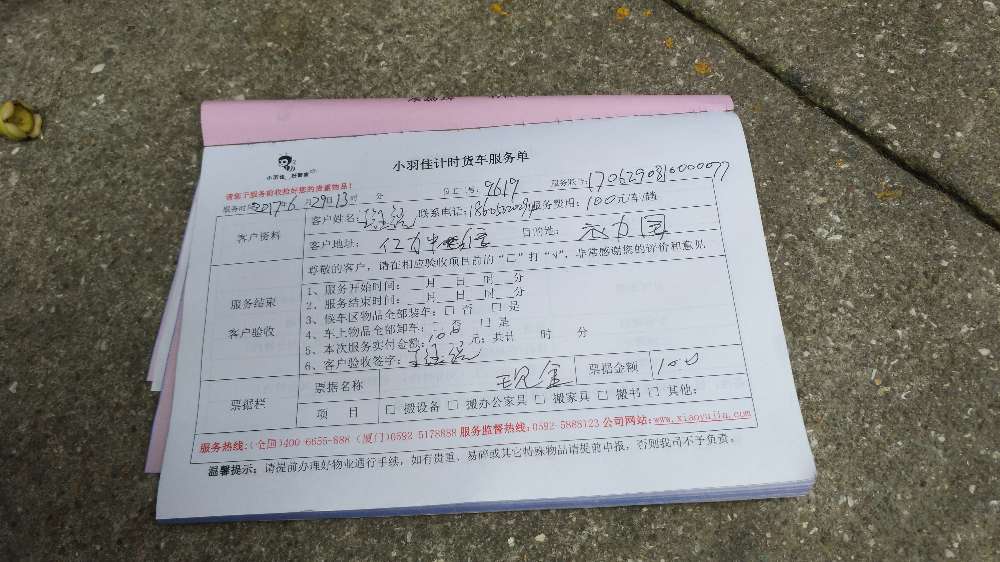 小羽佳计时货车服务单
小羽佳 好管家
请您于服务前收捡好您的贵重物品!
服务时间2017年6月29日13时 分
9619
170629081000077
客户资料
客户姓名:
联系电话:
服务费用:100元/车/趟
客户地址:
目的地:
尊敬的客户,请在相应验收项目前的“□”打“√”,非常感谢您的评价和意见
服务结束
客户验收
1、服务开始时间: 月 日 时 分
2、服务结束时间: 月 日 时 分
3、候车区物品全部装车:□ 否 □ 是
4、车上物品全部卸车:□ 否 □ 是
5、本次服务实付金额:100元;共计 时 分
6、客户验收签字:
票据栏
票据名称 现金 票据金额 100
项 目 □ 搬设备 □ 搬办公家具 □ 搬家具 □ 搬书 □ 其他:
服务热线:(全国)400-6655-888 (厦门)0592-5178888 服务监督热线:0592-5888123 公司网站:www.xiaoyujia.com
温馨提示:请提前办理好物业通行手续,如有贵重、易碎或其它特殊物品请提前申报,否则我司不予负责。